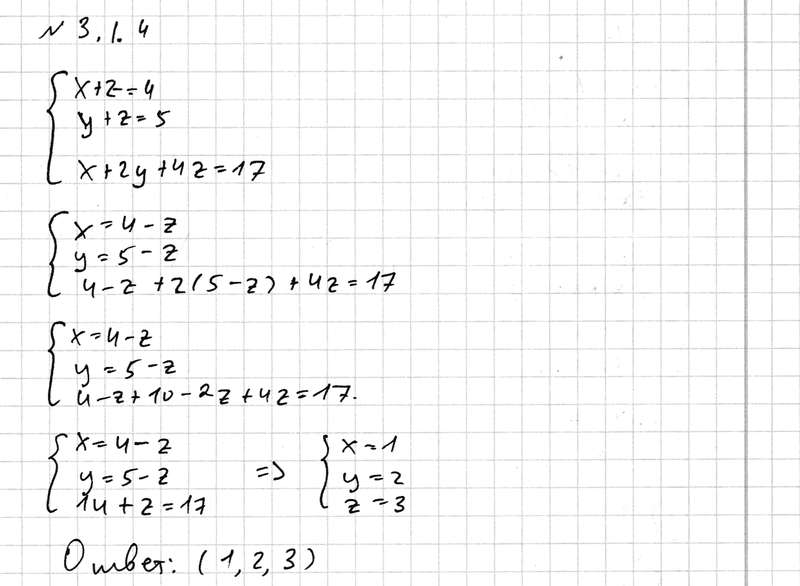 № 3.1.4
x+z=4
y+z=5
x+2y+4z=17
x=4-z
y=5-z
4-z+2(5-z)+4z=17
x=4-z
y=5-z
4-z+10-2z+4z=17.
x=4-z => x=1
y=5-z y=2
14+z=17 z=3
Ответ: (1,2,3)